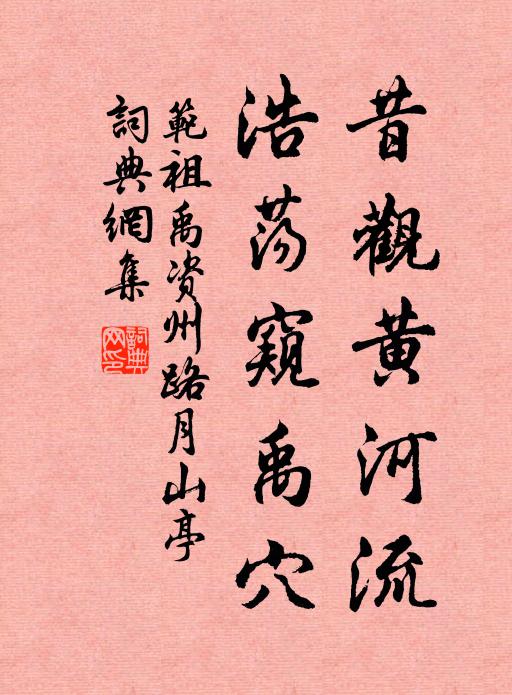 昔觀黄河流
浩荡窺禹穴
範祖禹资州路月山亭
詞典網集
詞典网印